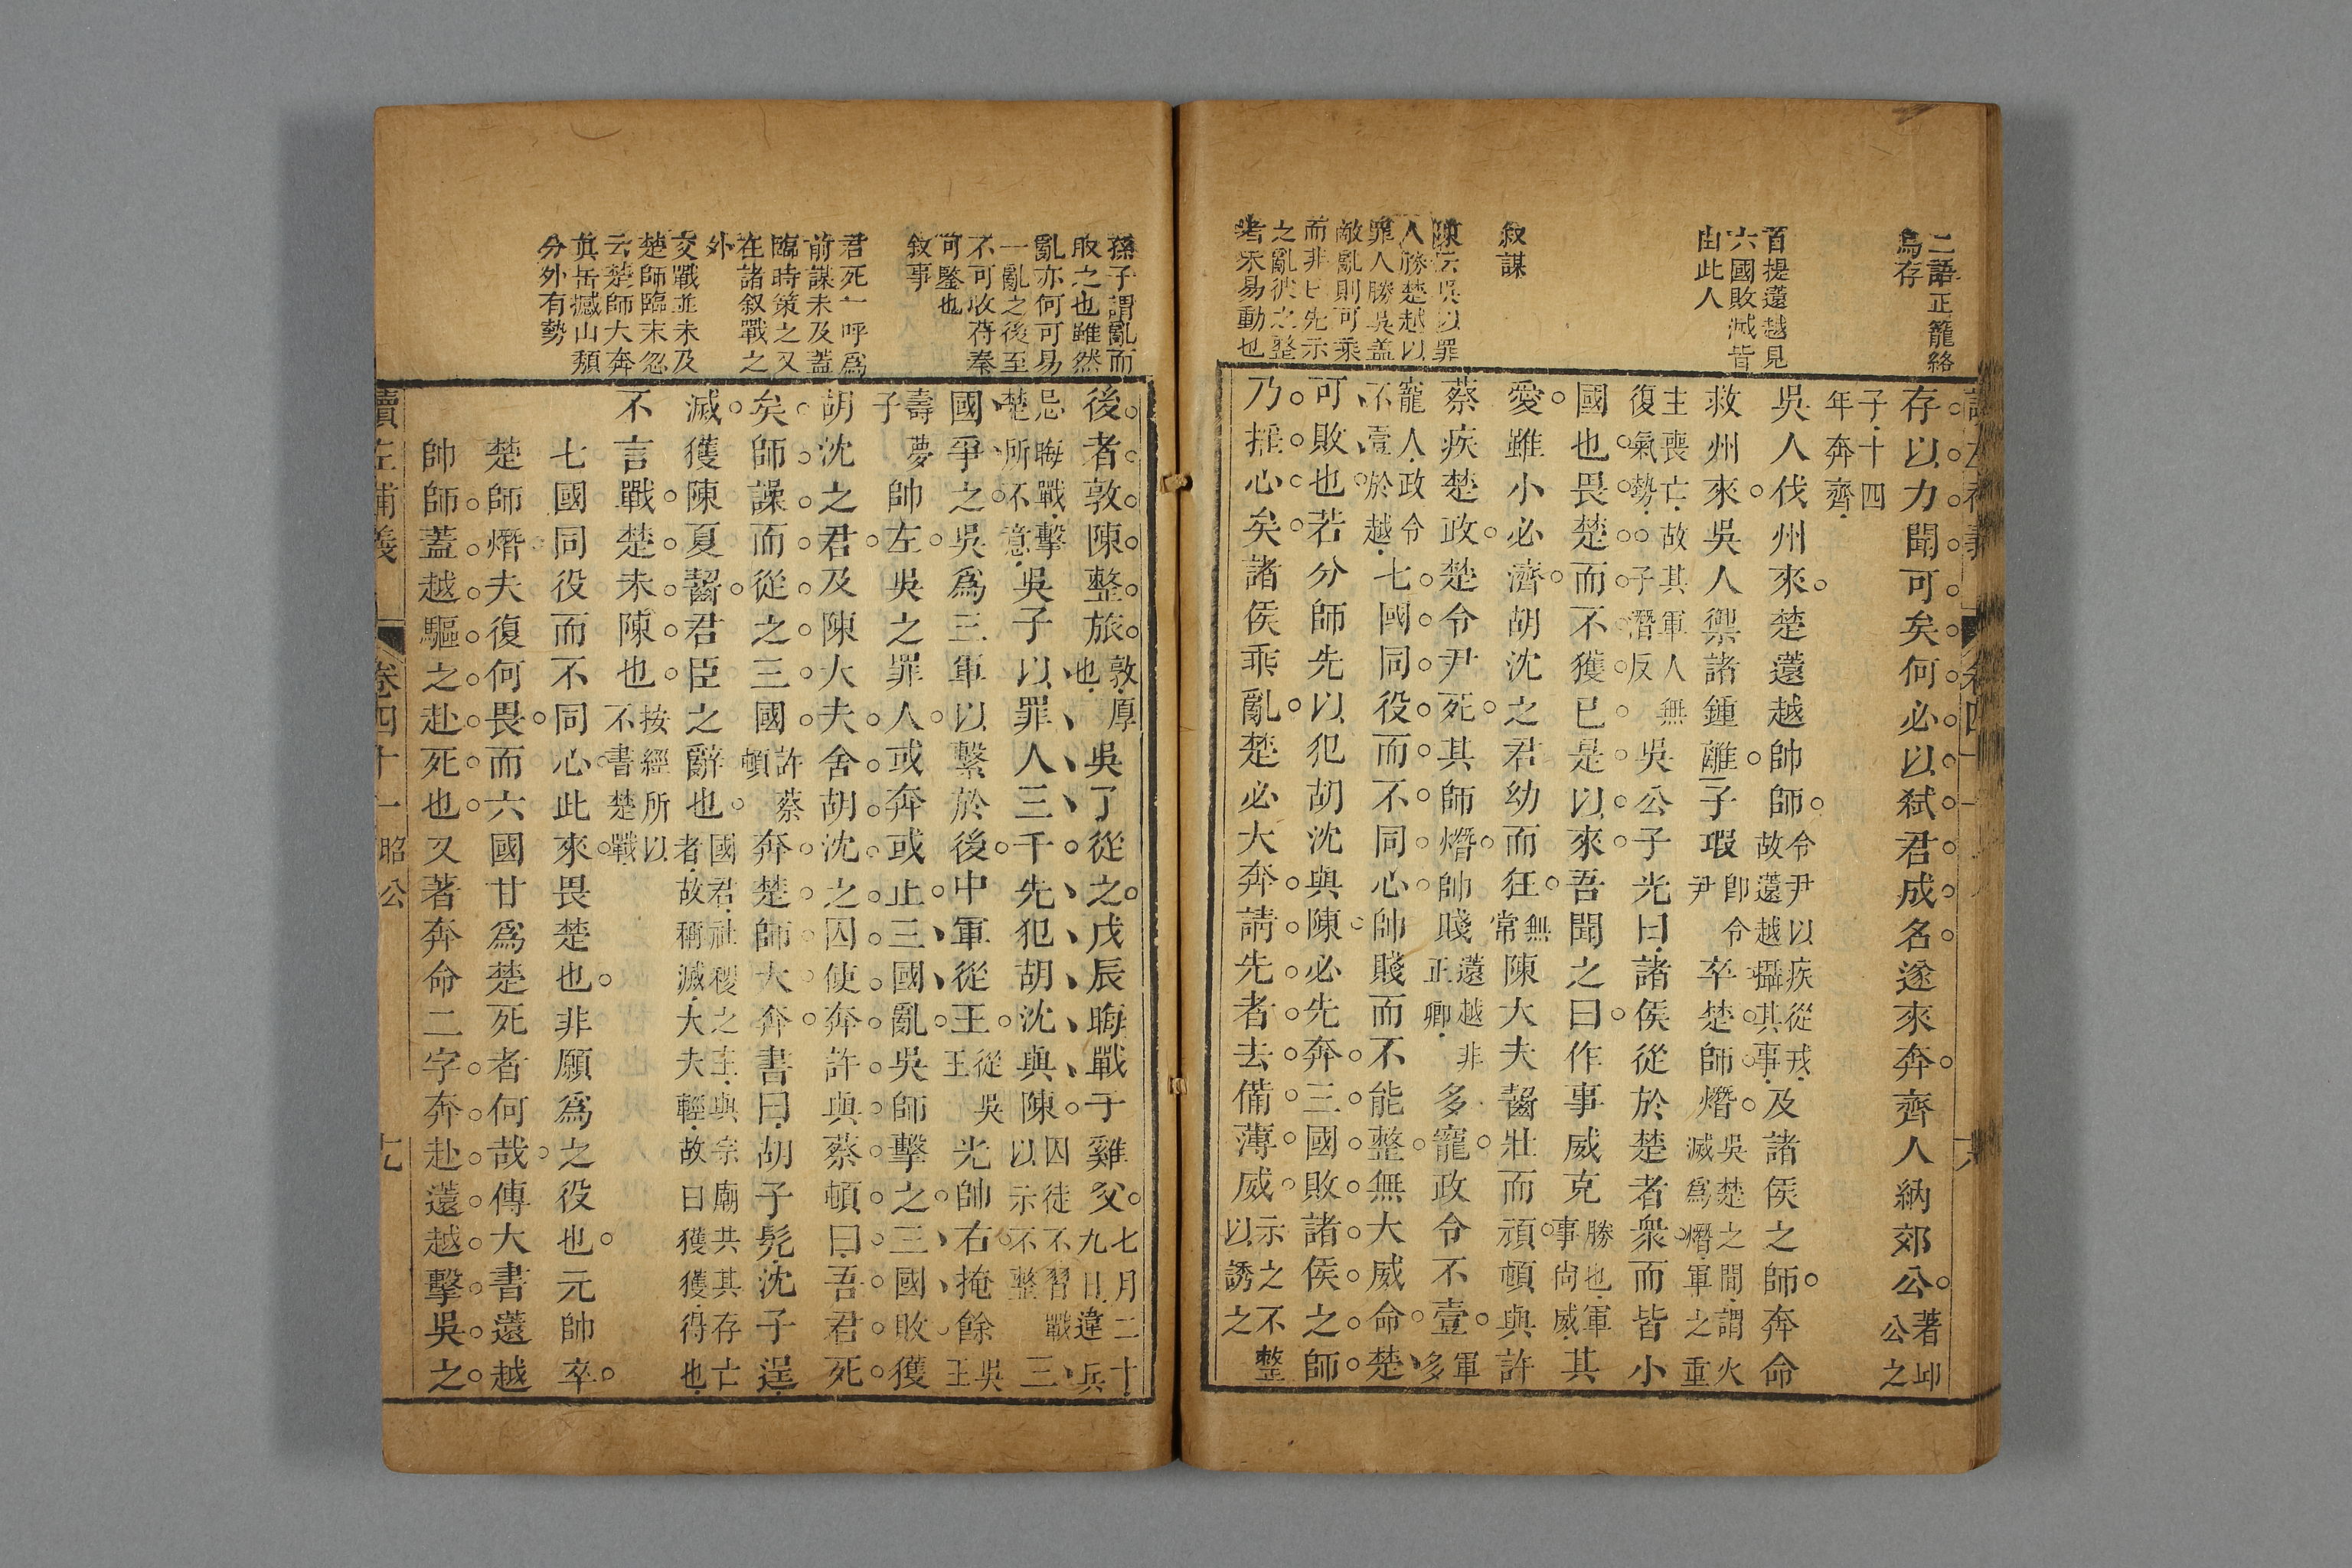 二語正籠絡
烏存
首提薳越見
六國敗滅皆
由此人
叙謀
陳云吳以罪
人勝楚越以
罪人勝吳盖
敵亂則可乘
而非已先示
之亂彼之整
者未易動也
存以力聞可矣何必以弑君成名遂來奔齊人納郊公著丘公之
子十四年奔齊
吳人伐州來楚薳越帥師令尹以疾從戎故薳越攝其事及諸侯之師奔命
救州來吳人禦諸鍾離子瑕卽令尹卒楚師熸吳楚之間謂火滅爲熸軍之重
主喪亡故其軍人無復氣勢子潛反吳公子光曰諸侯從於楚者衆而皆小
國也畏楚而不獲已是以來吾聞之曰作事威克勝也軍事尙威其
愛雖小必濟胡沈之君幼而狂無常陳大夫齧壯而頑頓與許
蔡疾楚政楚令尹死其師熸帥賤薳越非正卿多寵政令不壹軍多
寵人政令不壹於越七國同役而不同心帥賤而不能整無大威命楚
可敗也若分師先以犯胡沈與陳必先奔三國敗諸侯之師
乃搖心矣諸侯乖亂楚必大奔請先者去備薄威示之不整以誘之
孫子謂亂而
取之也雖然
亂亦何可易
一亂之後至
不可收苻秦
可鑒也
敘事
君死一呼爲
前謀未及蓋
臨時策之又
在諸叙戰之
外
交戰並未及
楚師臨末忽
云楚師大奔
眞岳撼山頽
分外有勢
後者敦陳整旅敦厚也吳子從之戊辰晦戰于雞父七月二十九日違兵
忌晦戰擊楚所不意吳子以罪人三千先犯胡沈與陳囚徒不習戰以示不整三
國爭之吳爲三軍以繫於後中軍從王從吳王光帥右掩餘吳王
壽夢子帥左吳之罪人或奔或止三國亂吳師擊之三國敗獲
胡沈之君及陳大夫舍胡沈之囚使奔許與蔡頓曰吾君死
矣師譟而從之三國許蔡頓奔楚師大奔書曰胡子髡沈子逞
滅獲陳夏齧君臣之辭也國君社稷之主與宗廟共其存亡者故稱滅大夫輕故曰獲獲得也
不言戰楚未陳也按經所以不書楚戰
七國同役而不同心此來畏楚也非願爲之役也元帥卒
楚師熸夫復何畏而六國甘爲楚死者何哉傳大書薳越
帥師蓋越驅之赴死也又著奔命二字奔赴薳越擊吳之
讀左補義
卷四十一 昭公
九